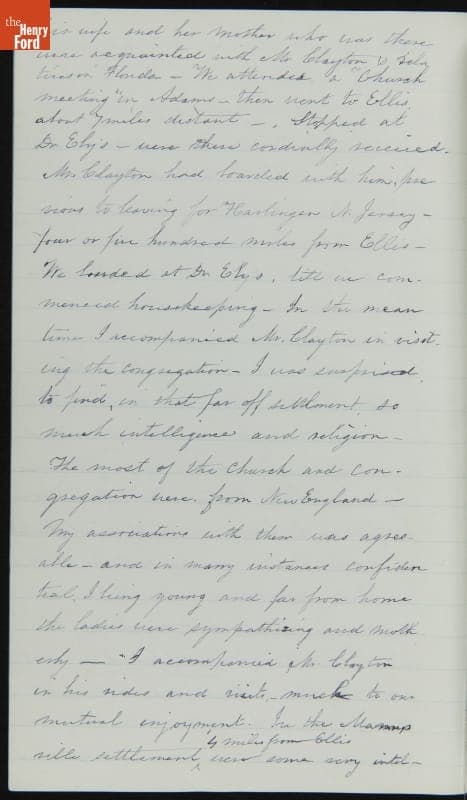 the
Henry
Ford
his wife and her mother who was there
were acquainted with Mr. Clayton &
tives in Florida – We attended a "Church
meeting" in Adams – then went to Ellis,
about 7 miles distant –. Stopped at
Dr Ely's – were there cordially received.
Mr. Clayton had boarded with him, pre
vious to leaving for Harlingen N. Jersey –
four or five hundred miles from Ellis –
We boarded at Dr Ely's, till we com-
menced housekeeping – In the mean
time I accompanied Mr. Clayton in visit-
ing the congregation – I was surprised,
to find, in that far off settlment, so
much intelligence and religion –
The most of the Church and con-
gregation were from New England –
My associations with them was agree-
able – and in many instances confiden
tial, I being young and far from home
the ladies were sympathizing and moth
erly – "I accompanied Mr. Clayton
in his rides and visits – much to our
mutual enjoyment. In the Manns
4 miles from Ellis
ville settlement were some very intel-